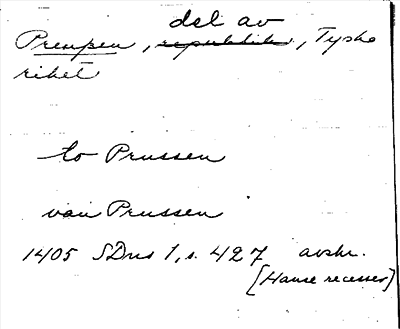 del av
Preussen, republik, Tyska
riket
to Prussen
van Prussen
1405 SDns 1, s. 427 avskr.
[Hanse recesser]